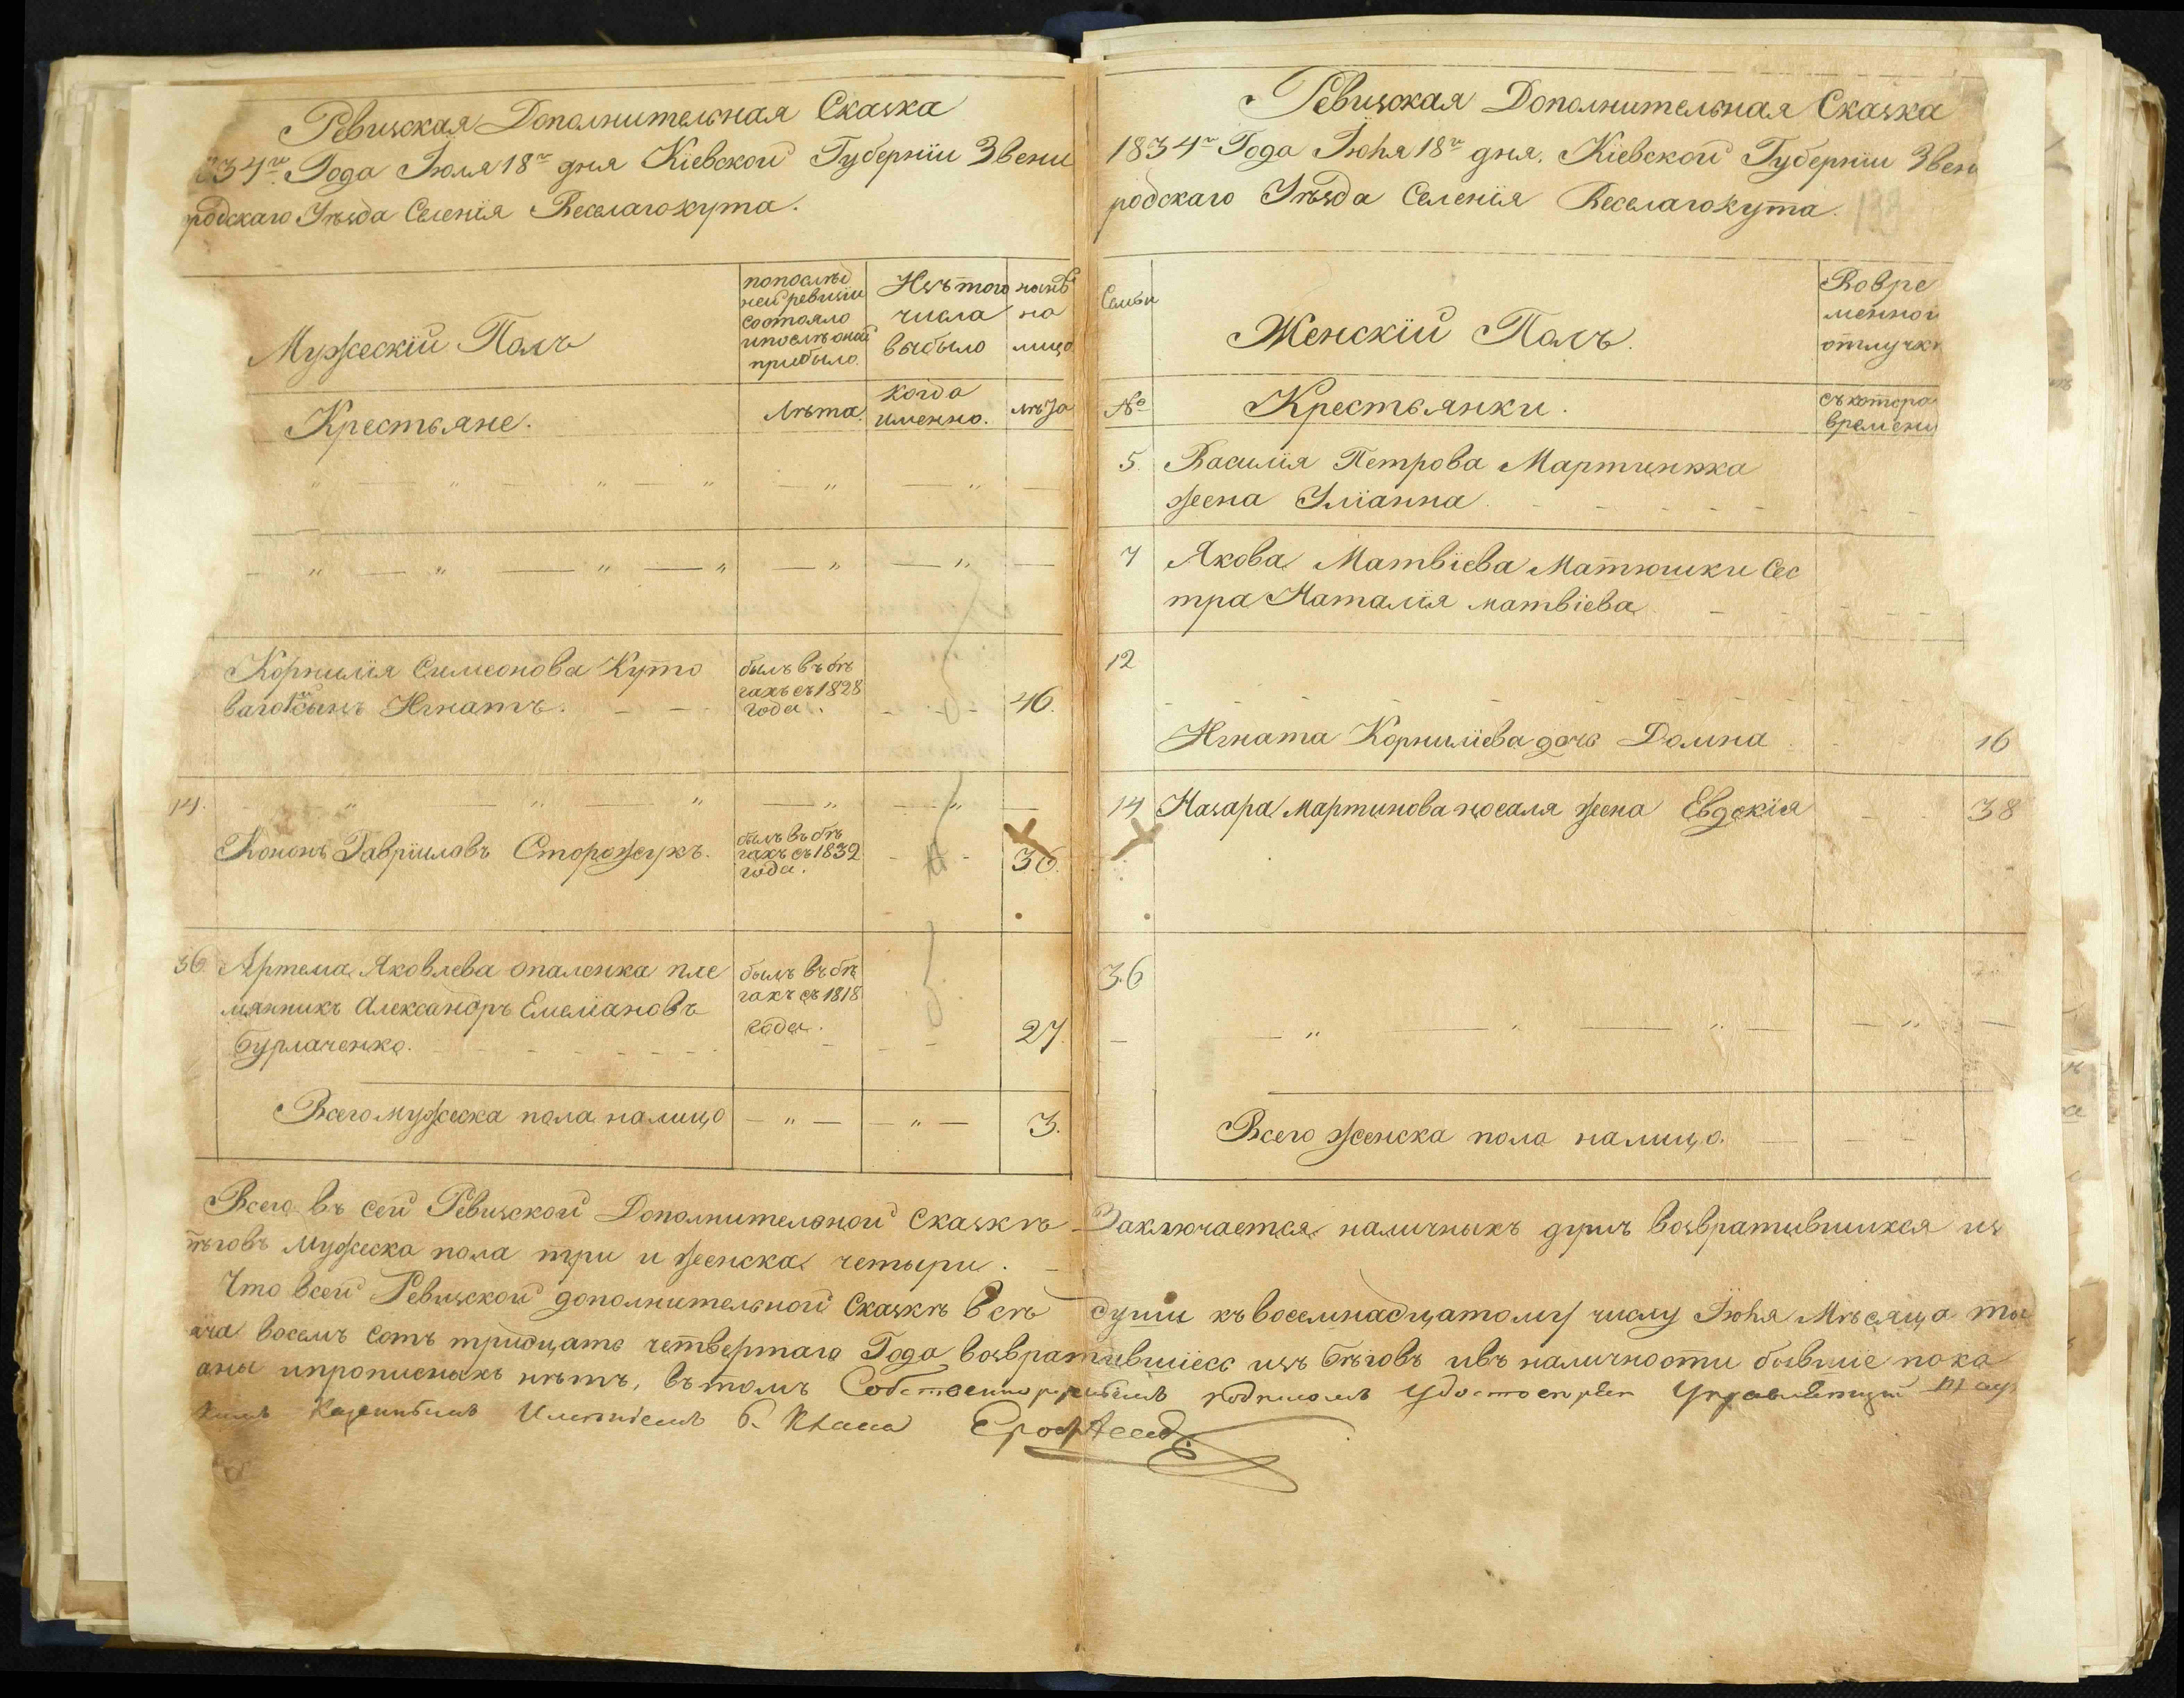 Ревизская Дополнительная Сказка
834го Года Июля 18го дня Кіевской Губерніи Звени
родскаго Уѣзда Селенія Веселагокута.
Мужескій Полъ
попослѣд
ней ревизіи
состояло
ипослѣ оной
прибыло.
Изъ того
числа
выбыло
нынѣ
на
лицо
Крестьяне.
Лѣта.
когда
именно.
лѣта
Корнилія Симеонова Куто
ваго сынъ Игнатъ.
былъ въ бѣ
гахъ съ 1828
года.
46.
14.
Кононъ Гавріиловъ Сторожукъ.
былъ въ бѣ
гахъ съ 1832
года.
36.
36 Артема Яковлева опаленка пле
мянникъ Александръ Емеліановъ
бурлаченко.
былъ въ бѣ
гахъ съ 1818
года.
27.
Всего мужеска пола налицо
3.
Ревизская Дополнительная Сказка
1834го Года Июля 18го дня, Кіевской Губерніи Звени
родскаго Уѣзда Селенія Веселагокута.
Семьи
Женскій Полъ.
Вовре
менной
отлучкѣ
№
Крестьянки.
съ котора
времени
5. Василія Петрова Мартынюка
жена Уліанна
7 Якова Матвіева Матюшки Сес
тра Наталія матвіева
12
Игната Корниліева дочь Домна 16
14 Назара Мартинова носаля жена Евдокія 38
36
Всего женска пола налицо.
Всего въ сей Ревизской Дополнительной Сказкѣ Заключается наличныхъ душъ возвратившихся из
ѣговъ мужеска пола три и женска четыри.
Что всей Ревизской дополнительной Сказкѣ всѣ души къ восемнадцатому числу Июля Мѣсяца ты
яча восемъ сотъ тридцать четвертаго Года возвратившіеся изъ бѣговъ ивъ наличности бывшіе пока
аны ипрописныхъ нѣтъ, въ томъ Собственноручнымъ подписомъ Удостоверяет Управляющій
Казеннымъ Имениемъ 6. Класа